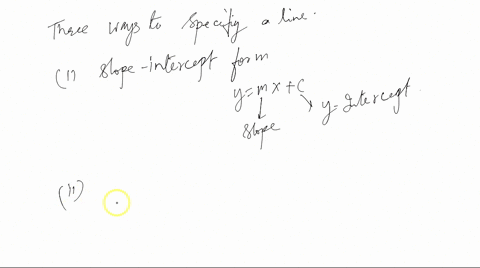 Three ways to specifiy a line.
(i) slope-intercept form
y = mx + c
slope
y = Intercept.
(ii)